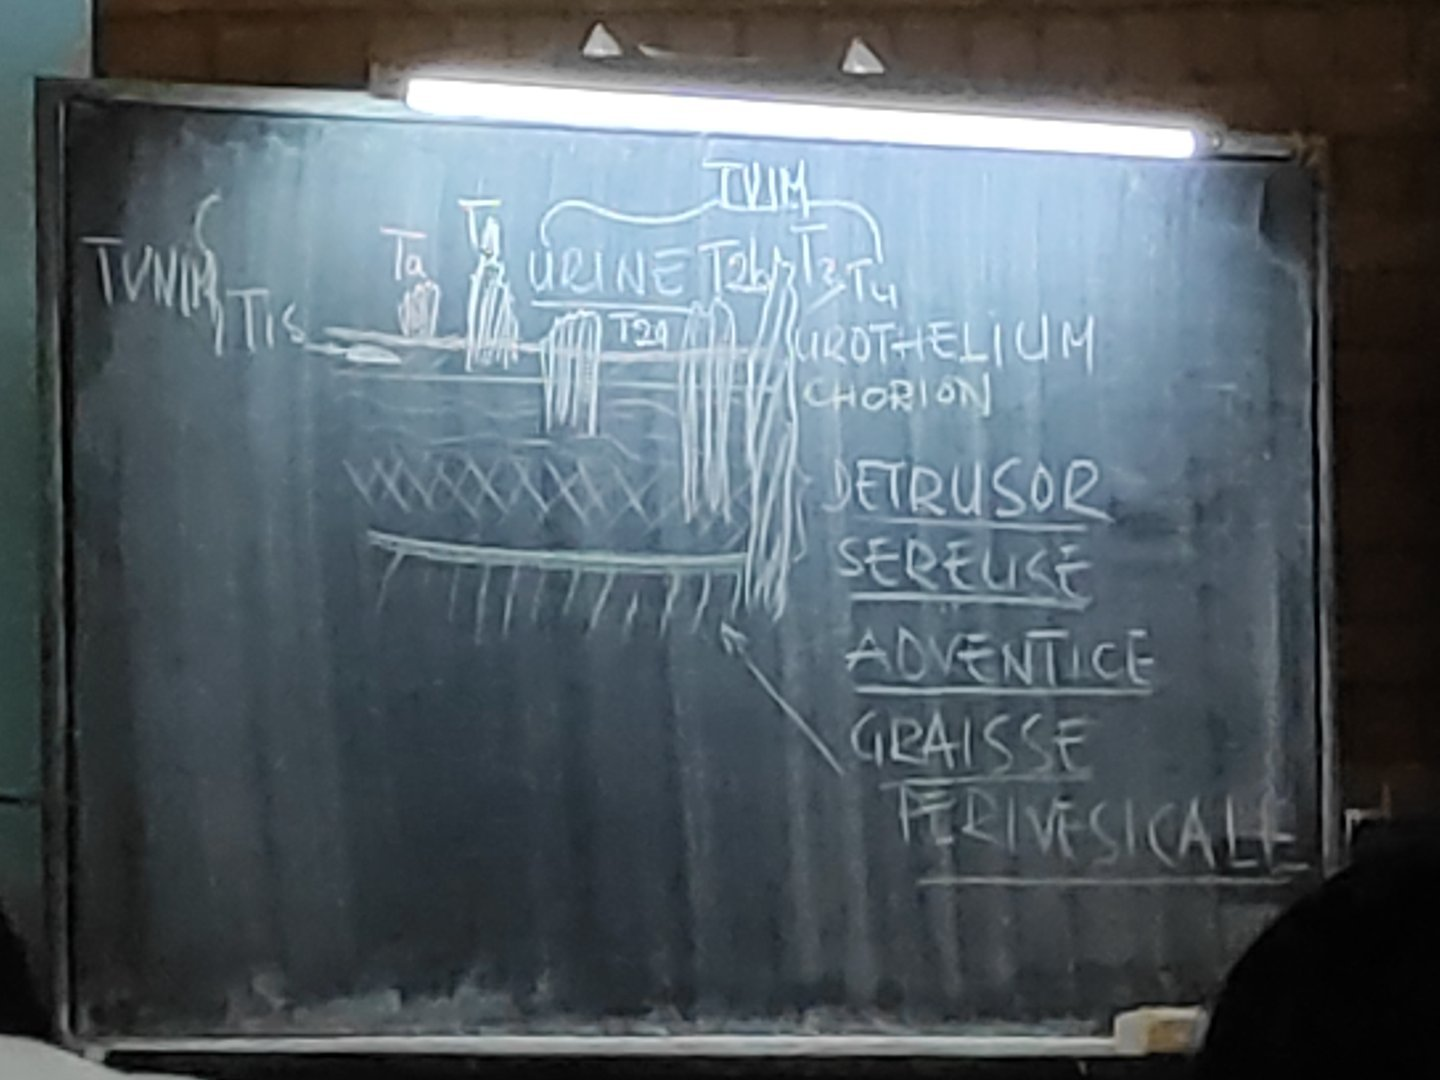 TVIM
TVNIM
Tis
Ta
T1
URINE
T2a
T2b
T3
T4
UROTHELIUM
CHORION
DETRUSOR
SEREUSE
ADVENTICE
GRAISSE
PERIVESICALE